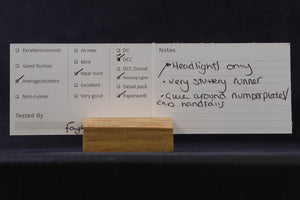 Excellent/smooth
Good Runner
Average/stutters
Non-runner
Tested By
As new
Mint
Near mint
Excellent
Very good
DC
DCC
DCC Sound
Working Lights
Detail pack
Paperwork
Notes
Headlights only
- very stuttery runner
- Glue around numberplates/
cab handrails